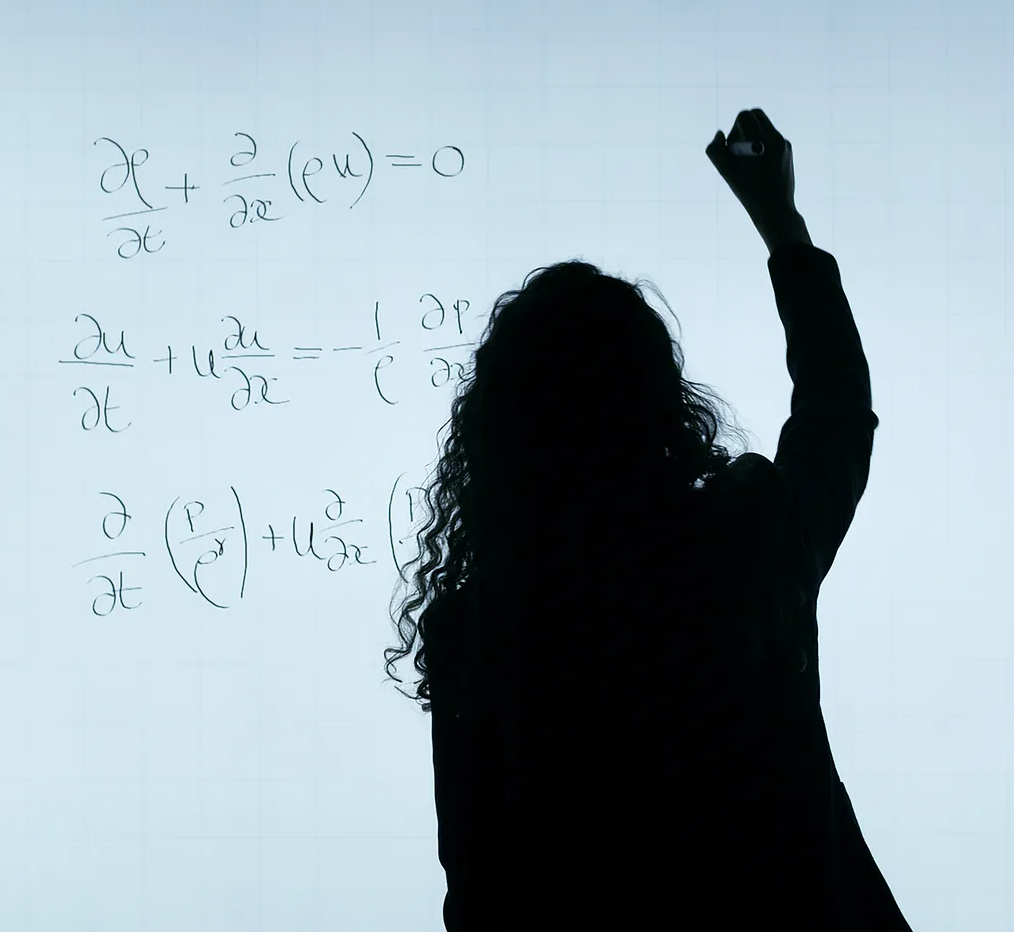 ∂ρ/∂t + ∂/∂x (ρu) = 0
∂u/∂t + u ∂u/∂x = − 1/ρ ∂p/∂x
∂/∂t (p/ρ^γ) + u ∂/∂x (p